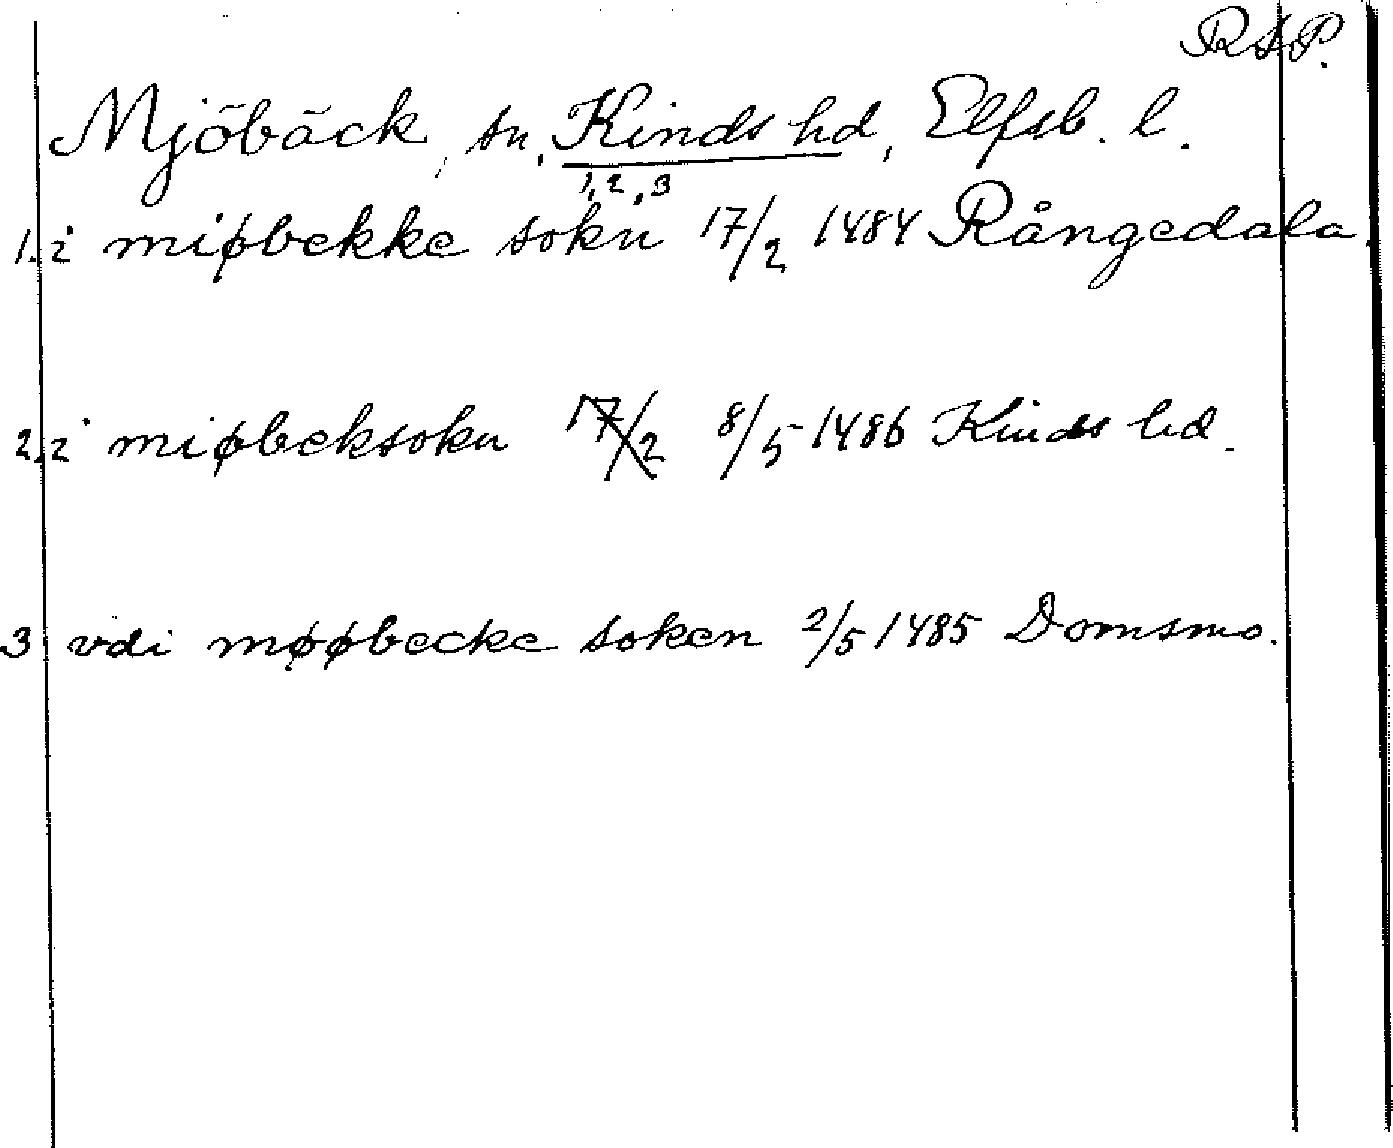 RAP.
Mjöbäck, sn, Kinds hd, Elfsb. l.
1, 2, 3
1. i miøbekke sokn 17/2 1484 Rångedala.
2. i miøbeksokn 17/2 8/5 1486 Kinds hd.
3 vdi møøbecke soken 2/5 1485 Domsmo.